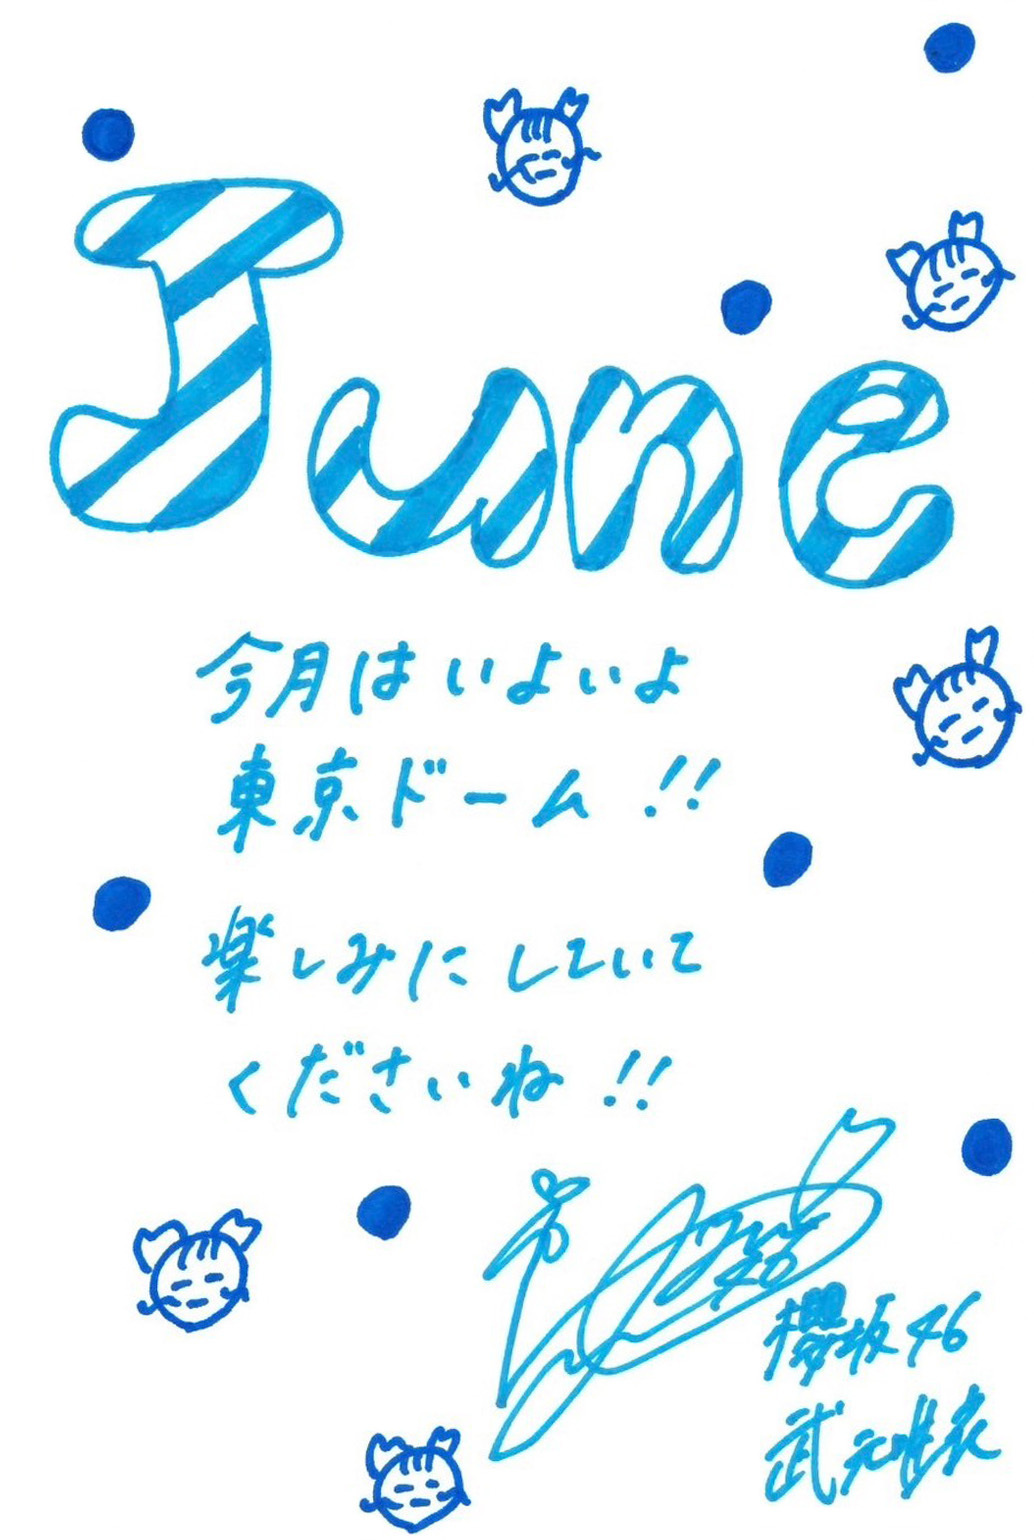 June
今月はいよいよ
東京ドーム!!
楽しみにしていて
くださいね!!
櫻坂46
武元唯衣